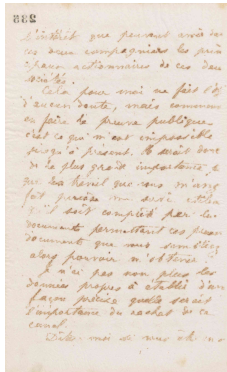 l'intérêt que peuvent avoir dans
ces deux compagnies les prin
cipaux actionnaires de ces deux
sociétés.
Cela pour moi ne fait l'objet
d'aucun doute, mais comment
en faire la preuve publique
c'est ce qui m'est impossible
jusqu'à présent. Il serait donc
de la plus grande importance
que le que vous m'avez
soit complété par les
documents permettant ces
document que vous
alors pouvoir m'obtenir.
Je n'ai pas non plus les
données propres à établir d'une
façon précise quelle serait
l'importance du rachat de ce
canal.
Dites moi si vous